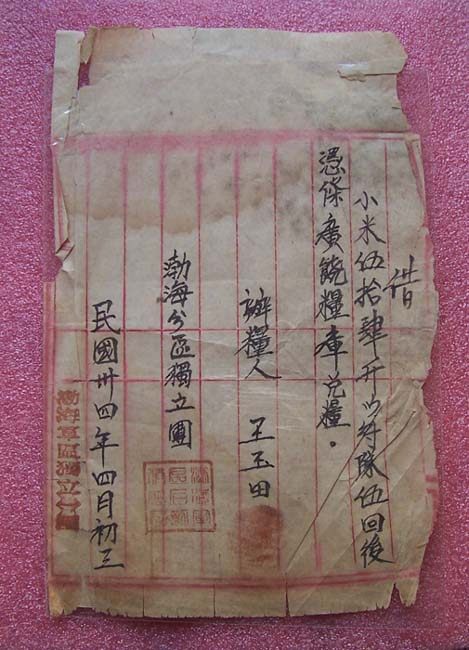 借
小米伍拾肆斤以隊伍回後
憑條廣饒糧庫兌糧。
辦糧人 王玉田
渤海分區獨立團
民國卅四年四月初三
渤海軍區獨立團